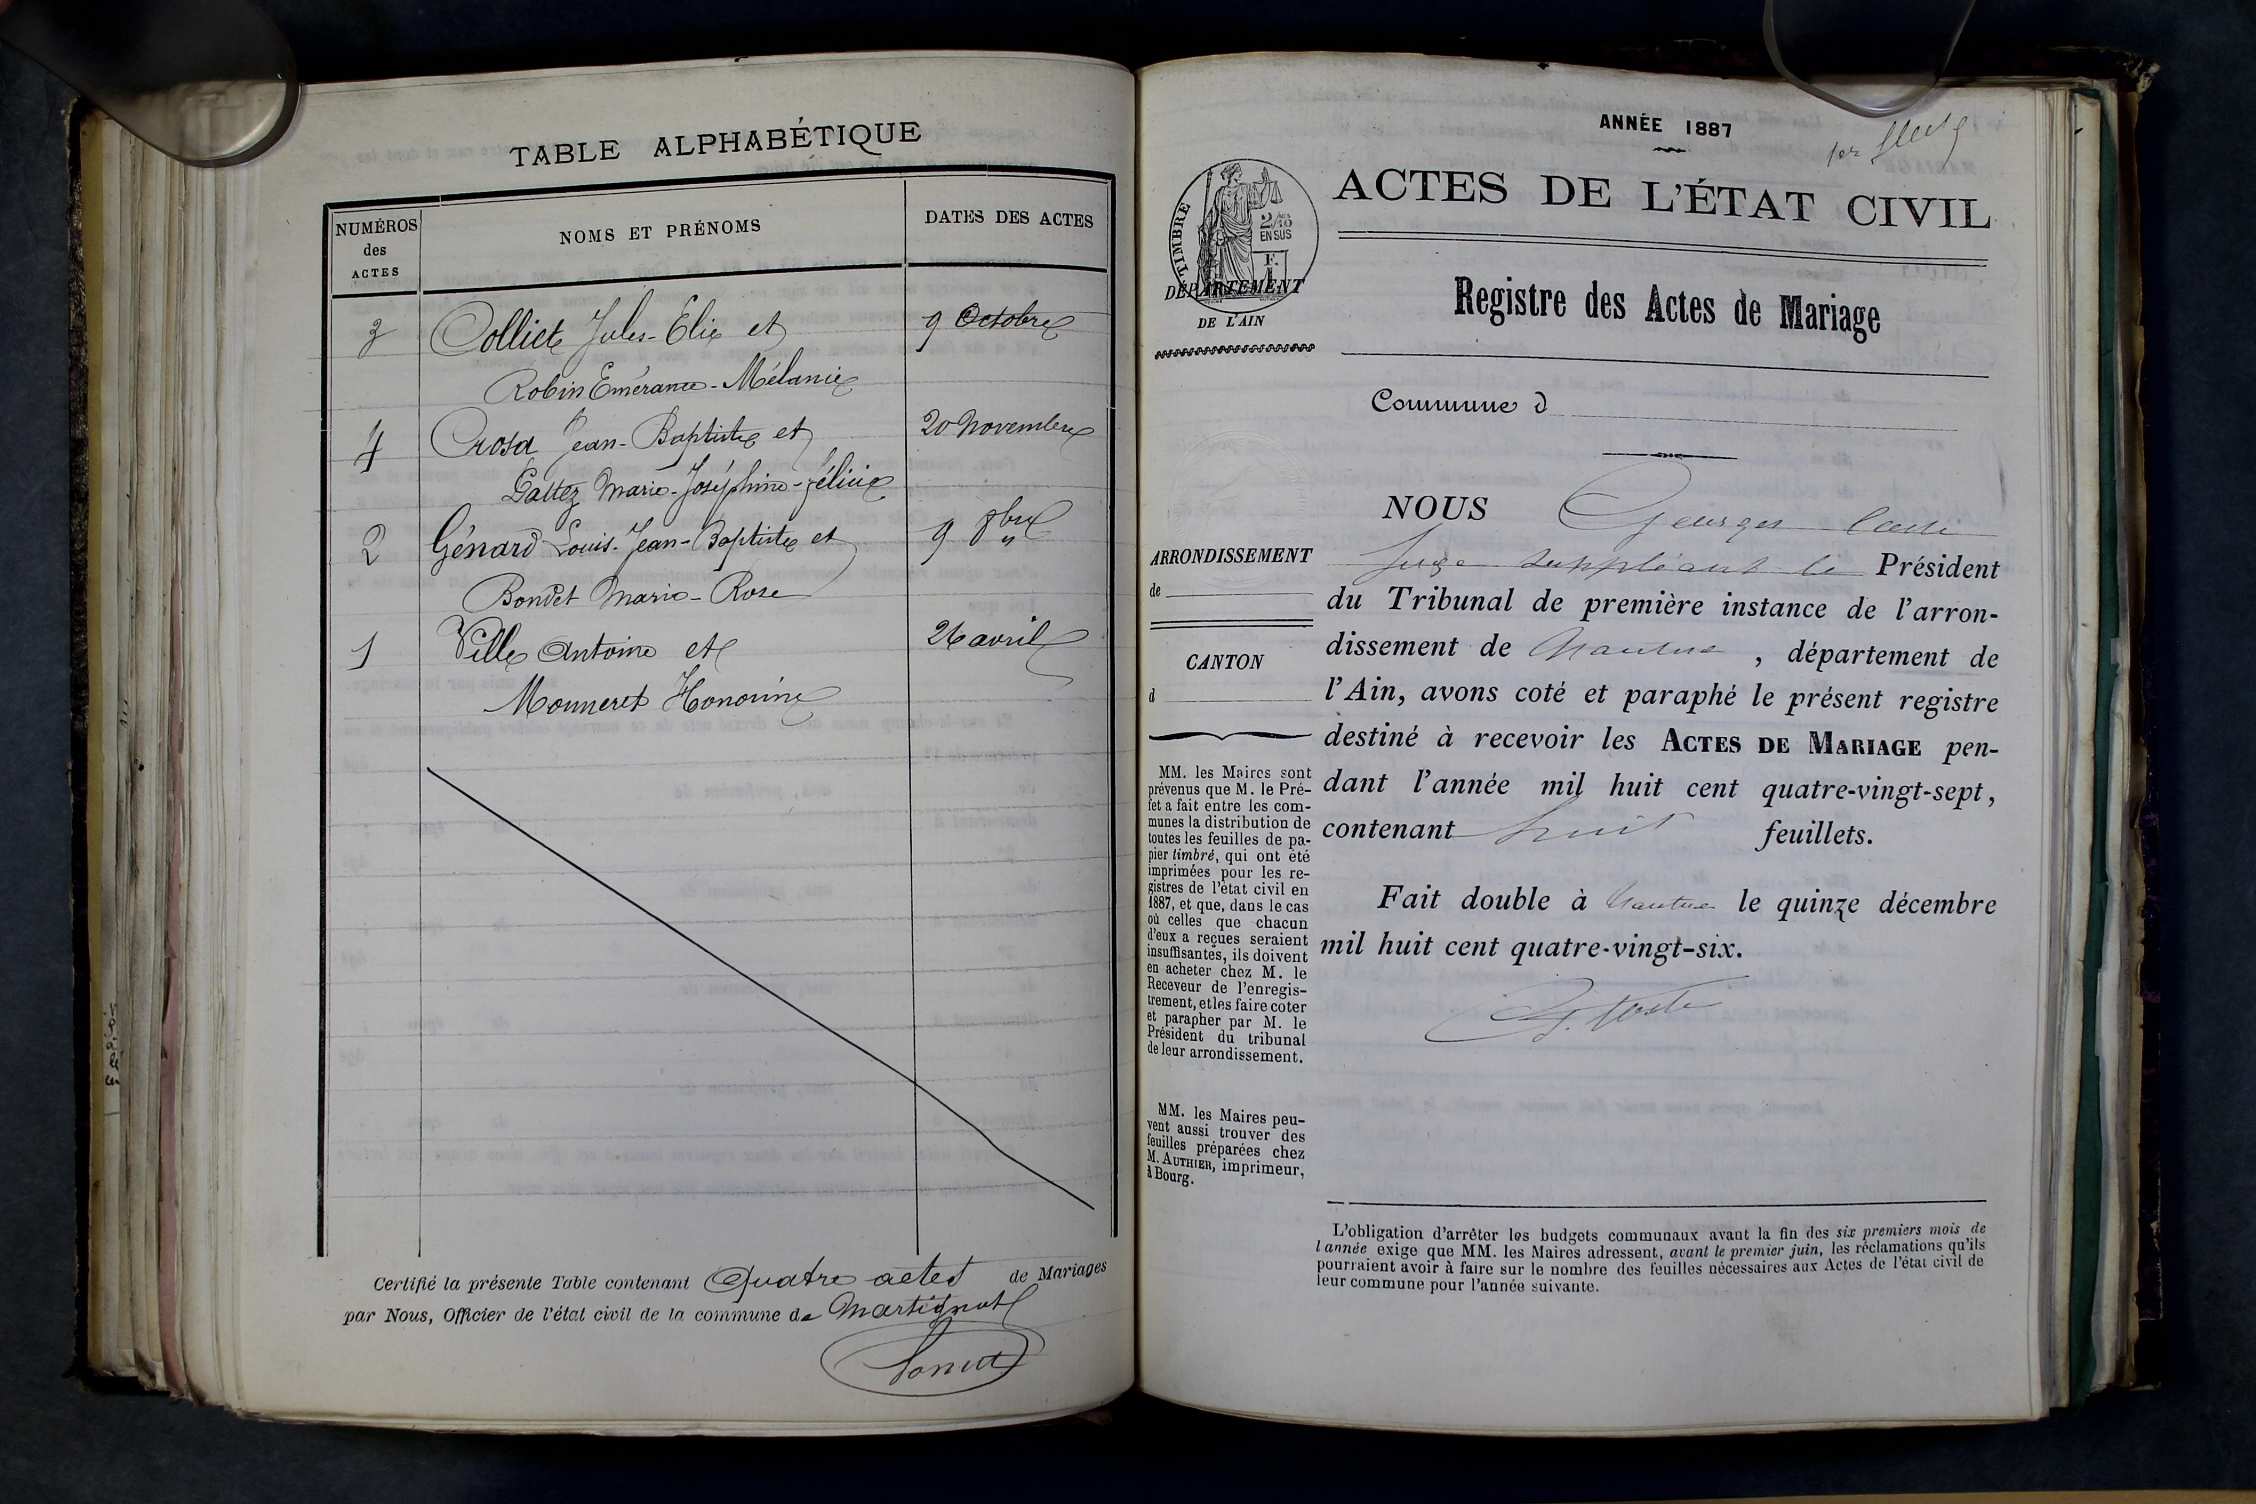 TABLE ALPHABÉTIQUE
NUMÉROS
des
ACTES
NOMS ET PRÉNOMS
DATES DES ACTES
3 Colliet Jules-Elie et 9 Octobre
Robin Emérance-Mélanie
4 Crosa Jean-Baptiste et 20 Novembre
Gattez Marie-Joséphine-Félicie
2 Génard Louis-Jean-Baptiste et 9 8bre
Bondet Marie-Rose
1 Ville Antoine et 26 avril
Monneret Honorine
Certifié la présente Table contenant Quatre actes de Mariages
par Nous, Officier de l'état civil de la commune de Martignat
ANNÉE 1887
1er
ACTES DE L'ÉTAT CIVIL
TIMBRE
2/10
EN SUS
F.
1
DÉPARTEMENT
DE L'AIN
Registre des Actes de Mariage
Commune d
NOUS Georges
Juge suppléant le Président
du Tribunal de première instance de l'arron-
dissement de Nantua, département de
l'Ain, avons coté et paraphé le présent registre
destiné à recevoir les ACTES DE MARIAGE pen-
dant l'année mil huit cent quatre-vingt-sept,
contenant huit feuillets.
Fait double à Nantua le quinze décembre
mil huit cent quatre-vingt-six.
ARRONDISSEMENT
de
CANTON
d
MM. les Maires sont
prévenus que M. le Pré-
fet a fait entre les com-
munes la distribution de
toutes les feuilles de pa-
pier timbré, qui ont été
imprimées pour les re-
gistres de l'état civil en
1887, et que, dans le cas
où celles que chacun
d'eux a reçues seraient
insuffisantes, ils doivent
en acheter chez M. le
Receveur de l'enregis-
trement, et les faire coter
et parapher par M. le
Président du tribunal
de leur arrondissement.
MM. les Maires peu-
vent aussi trouver des
feuilles préparées chez
M. AUTHIER, imprimeur,
à Bourg.
L'obligation d'arrêter les budgets communaux avant la fin des six premiers mois de
l'année exige que MM. les Maires adressent, avant le premier juin, les réclamations qu'ils
pourraient avoir à faire sur le nombre des feuilles nécessaires aux Actes de l'état civil de
leur commune pour l'année suivante.